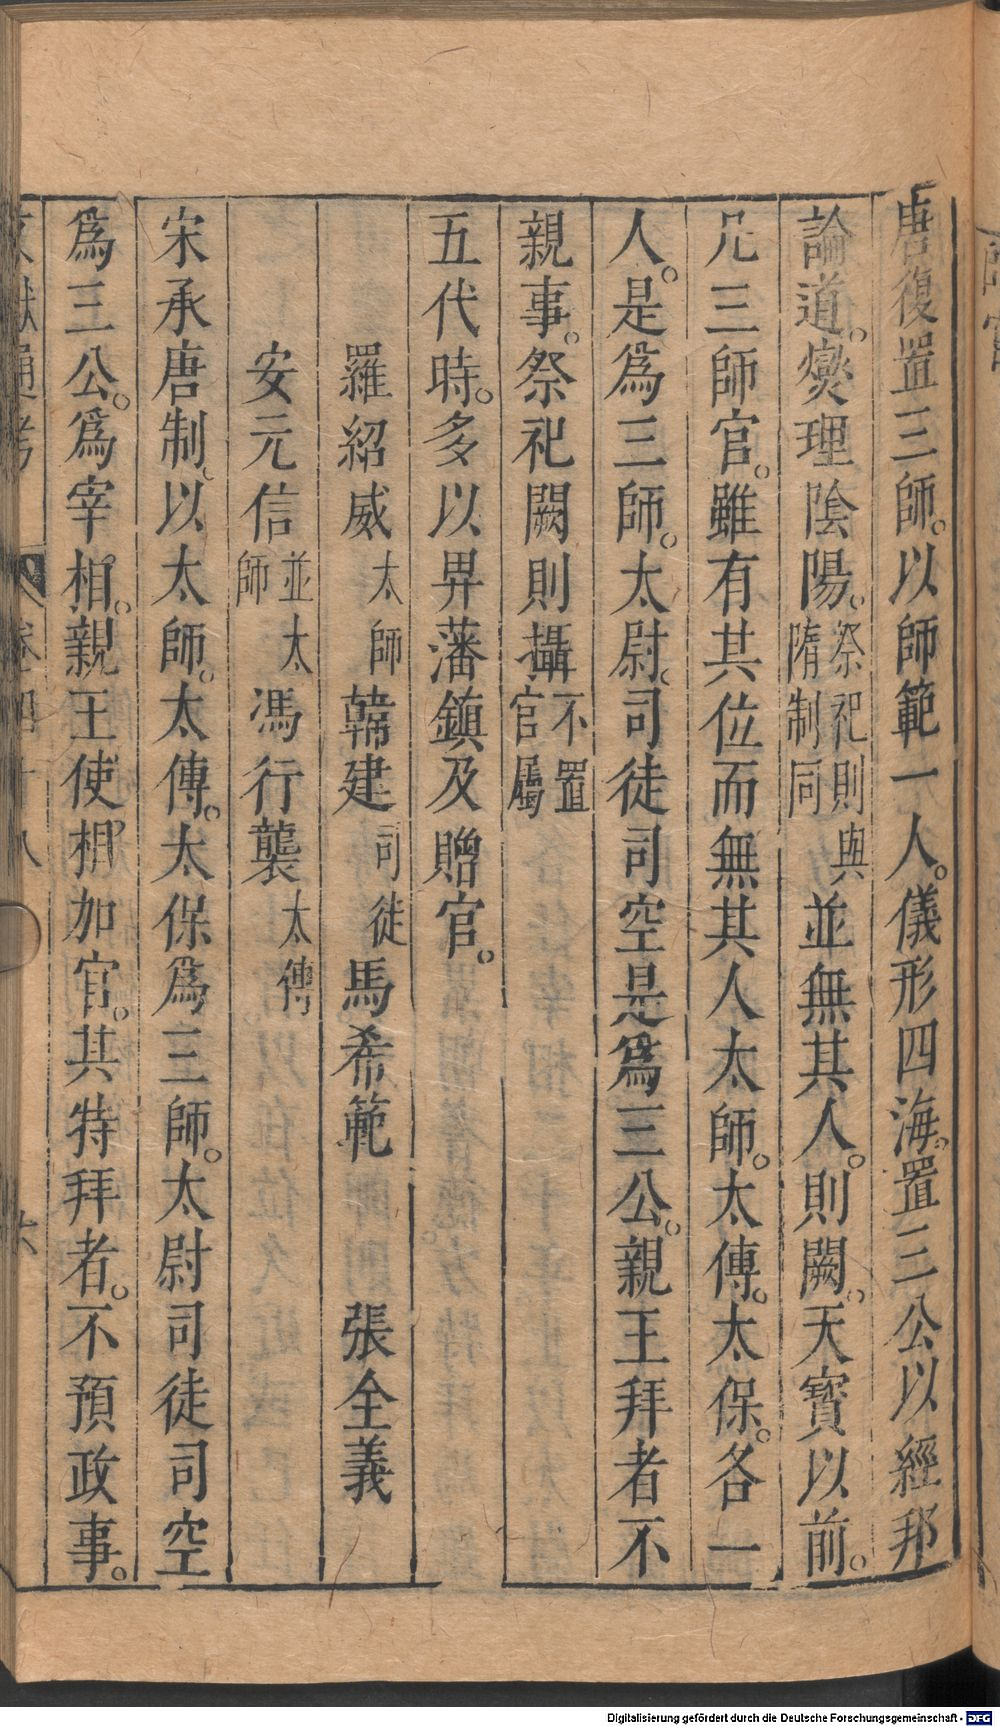 唐復置三師。以師範一人。儀形四海。置三公以經邦
論道。燮理陰陽。祭祀則與隋制同並無其人。則闕。天寶以前。
凡三師官。雖有其位而無其人太師。太傅。太保。各一
人。是爲三師。太尉。司徒司空是爲三公。親王拜者不
親事。祭祀闕則攝不置官屬
五代時。多以畀藩鎮及贈官。
羅紹威太師韓建司徒馬希範 張全義
安元信並太師馮行襲太傅
宋承唐制。以太師。太傅。太保爲三師。太尉司徒司空
爲三公。爲宰相。親王使相加官。其特拜者。不預政事。
文獻通考 卷四十八 六
Digitalisierung gefördert durch die Deutsche Forschungsgemeinschaft - DFG